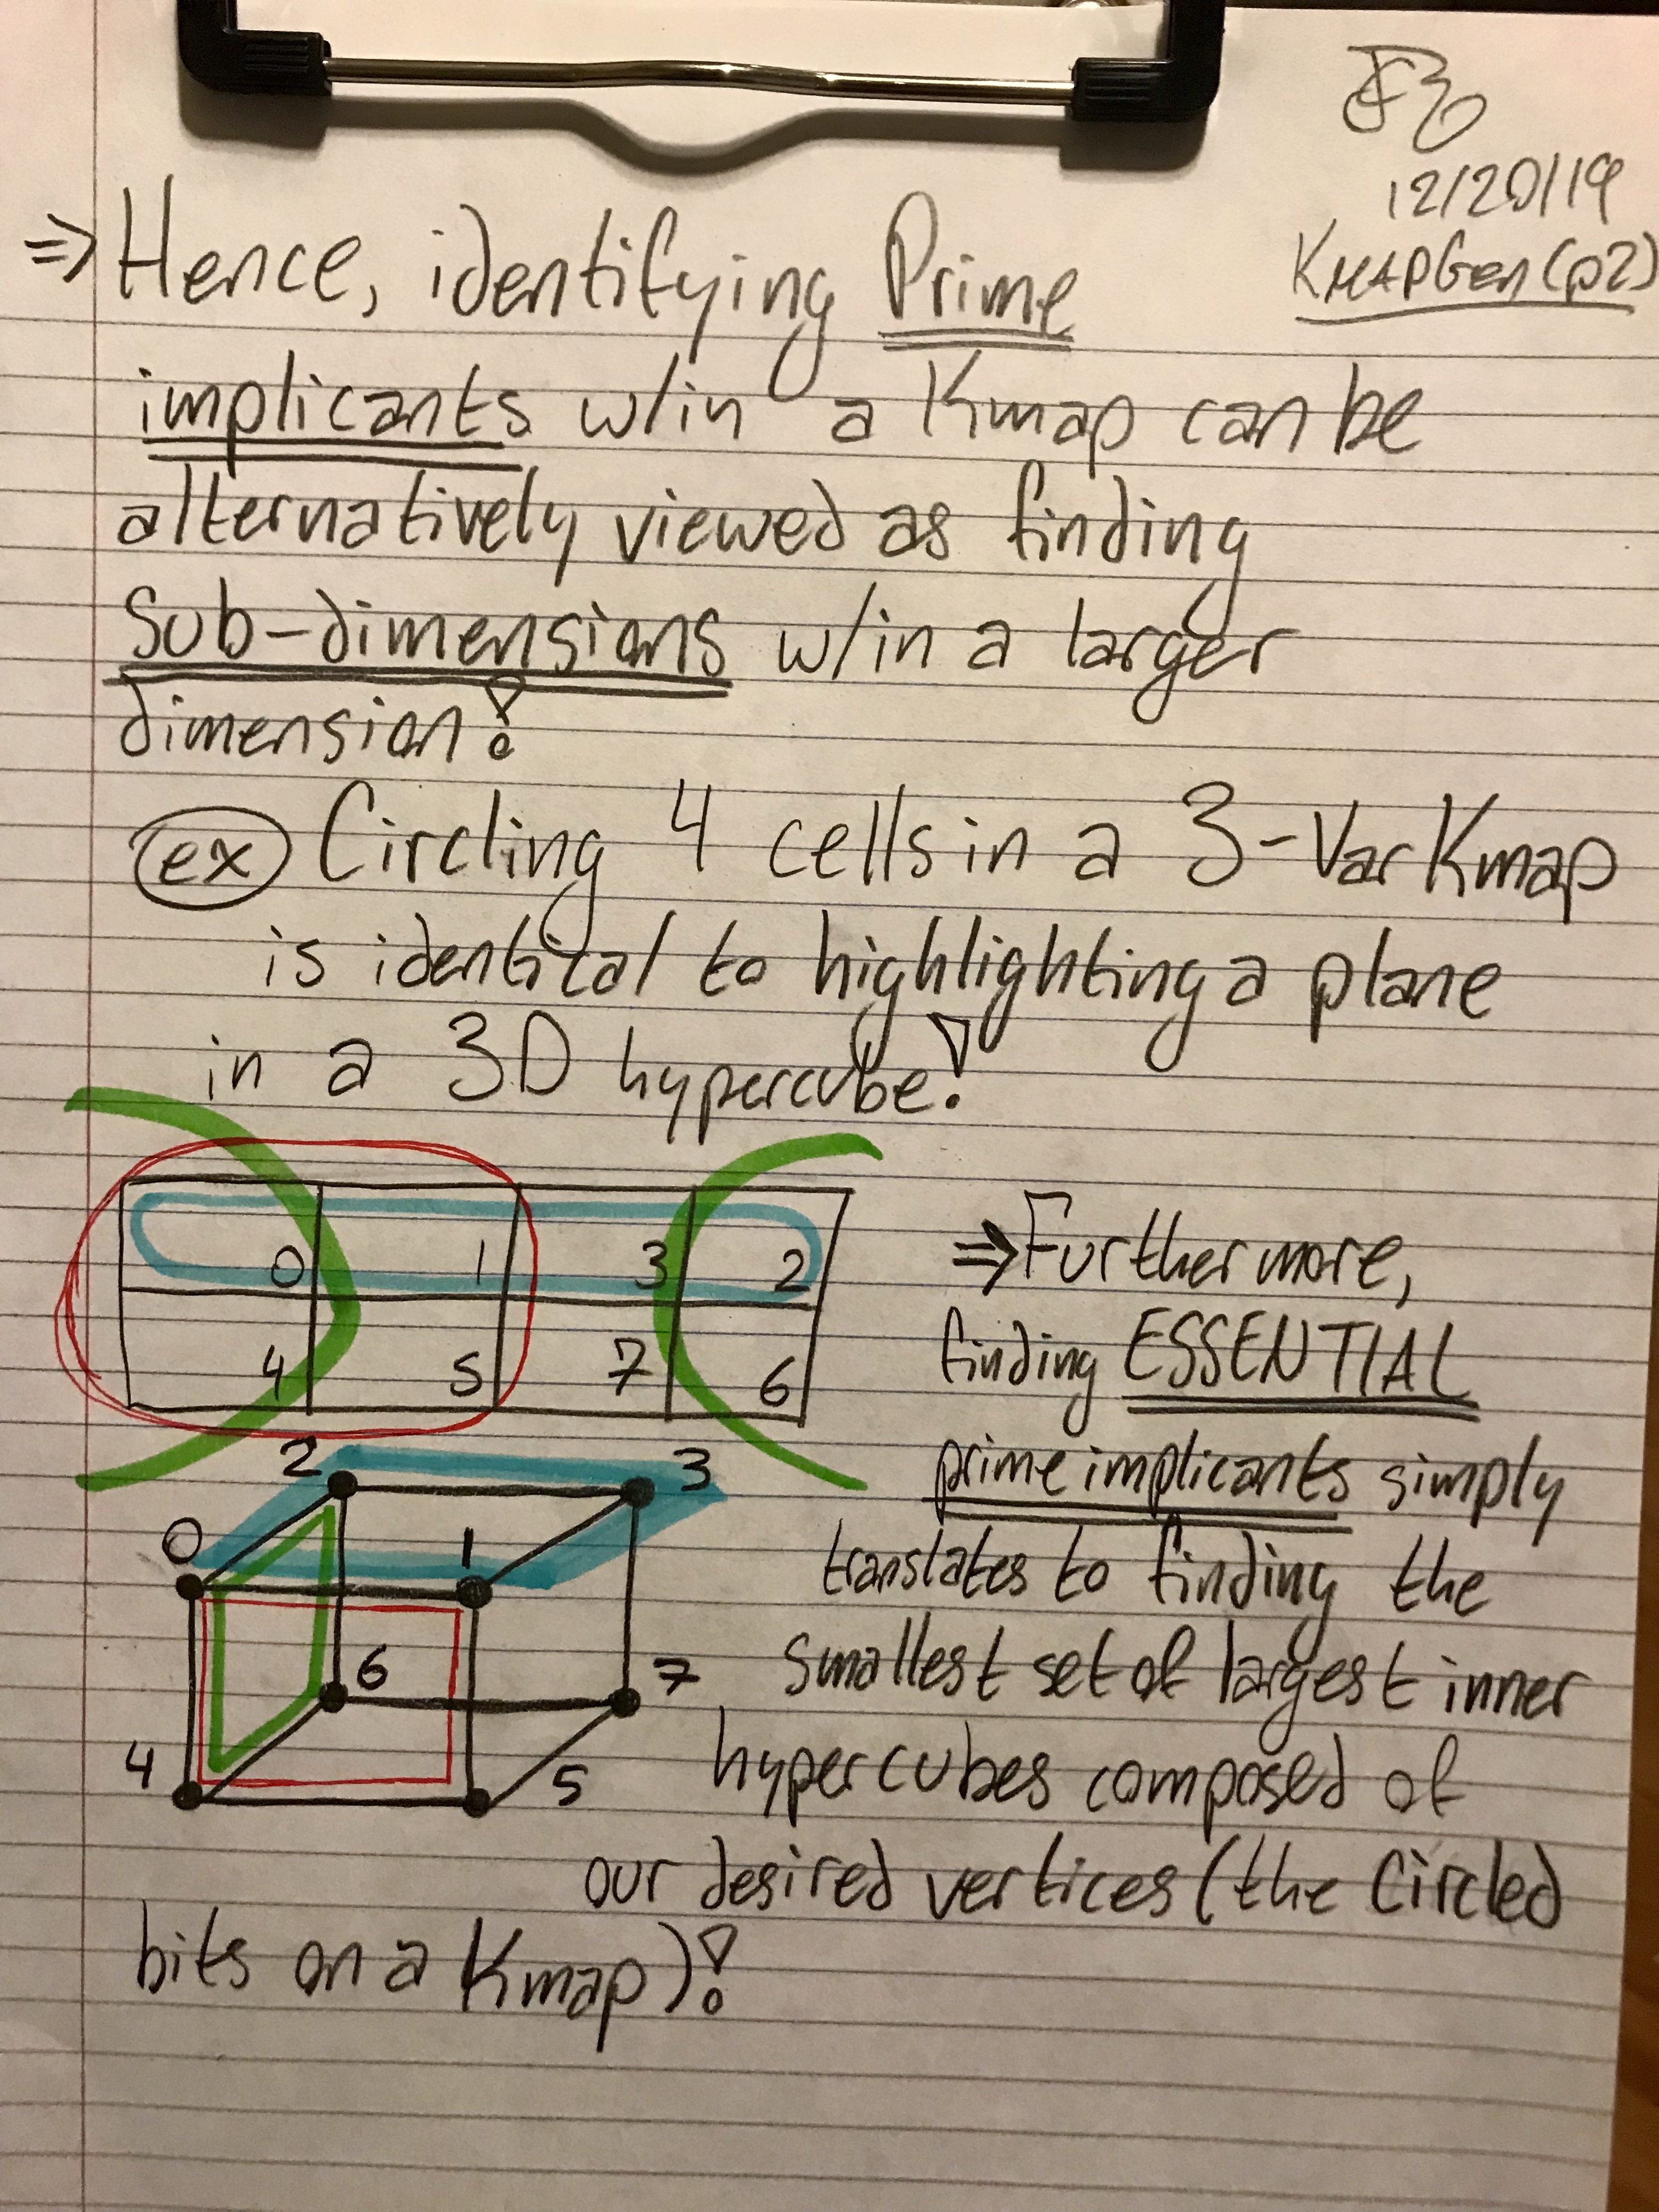 12/20/19
KMAPGen (p2)
⇒ Hence, identifying Prime
implicants w/in a Kmap can be
alternatively viewed as finding
Sub-dimensions w/in a larger
dimension!
ex Circling 4 cells in a 3-Var Kmap
is identical to highlighting a plane
in a 3D hypercube!
0 1 3 2
4 5 7 6
2 3
0 1
6 7
4 5
⇒ Furthermore,
finding ESSENTIAL
prime implicants simply
translates to finding the
smallest set of largest inner
hypercubes composed of
our desired vertices (the Circled
bits on a Kmap)!